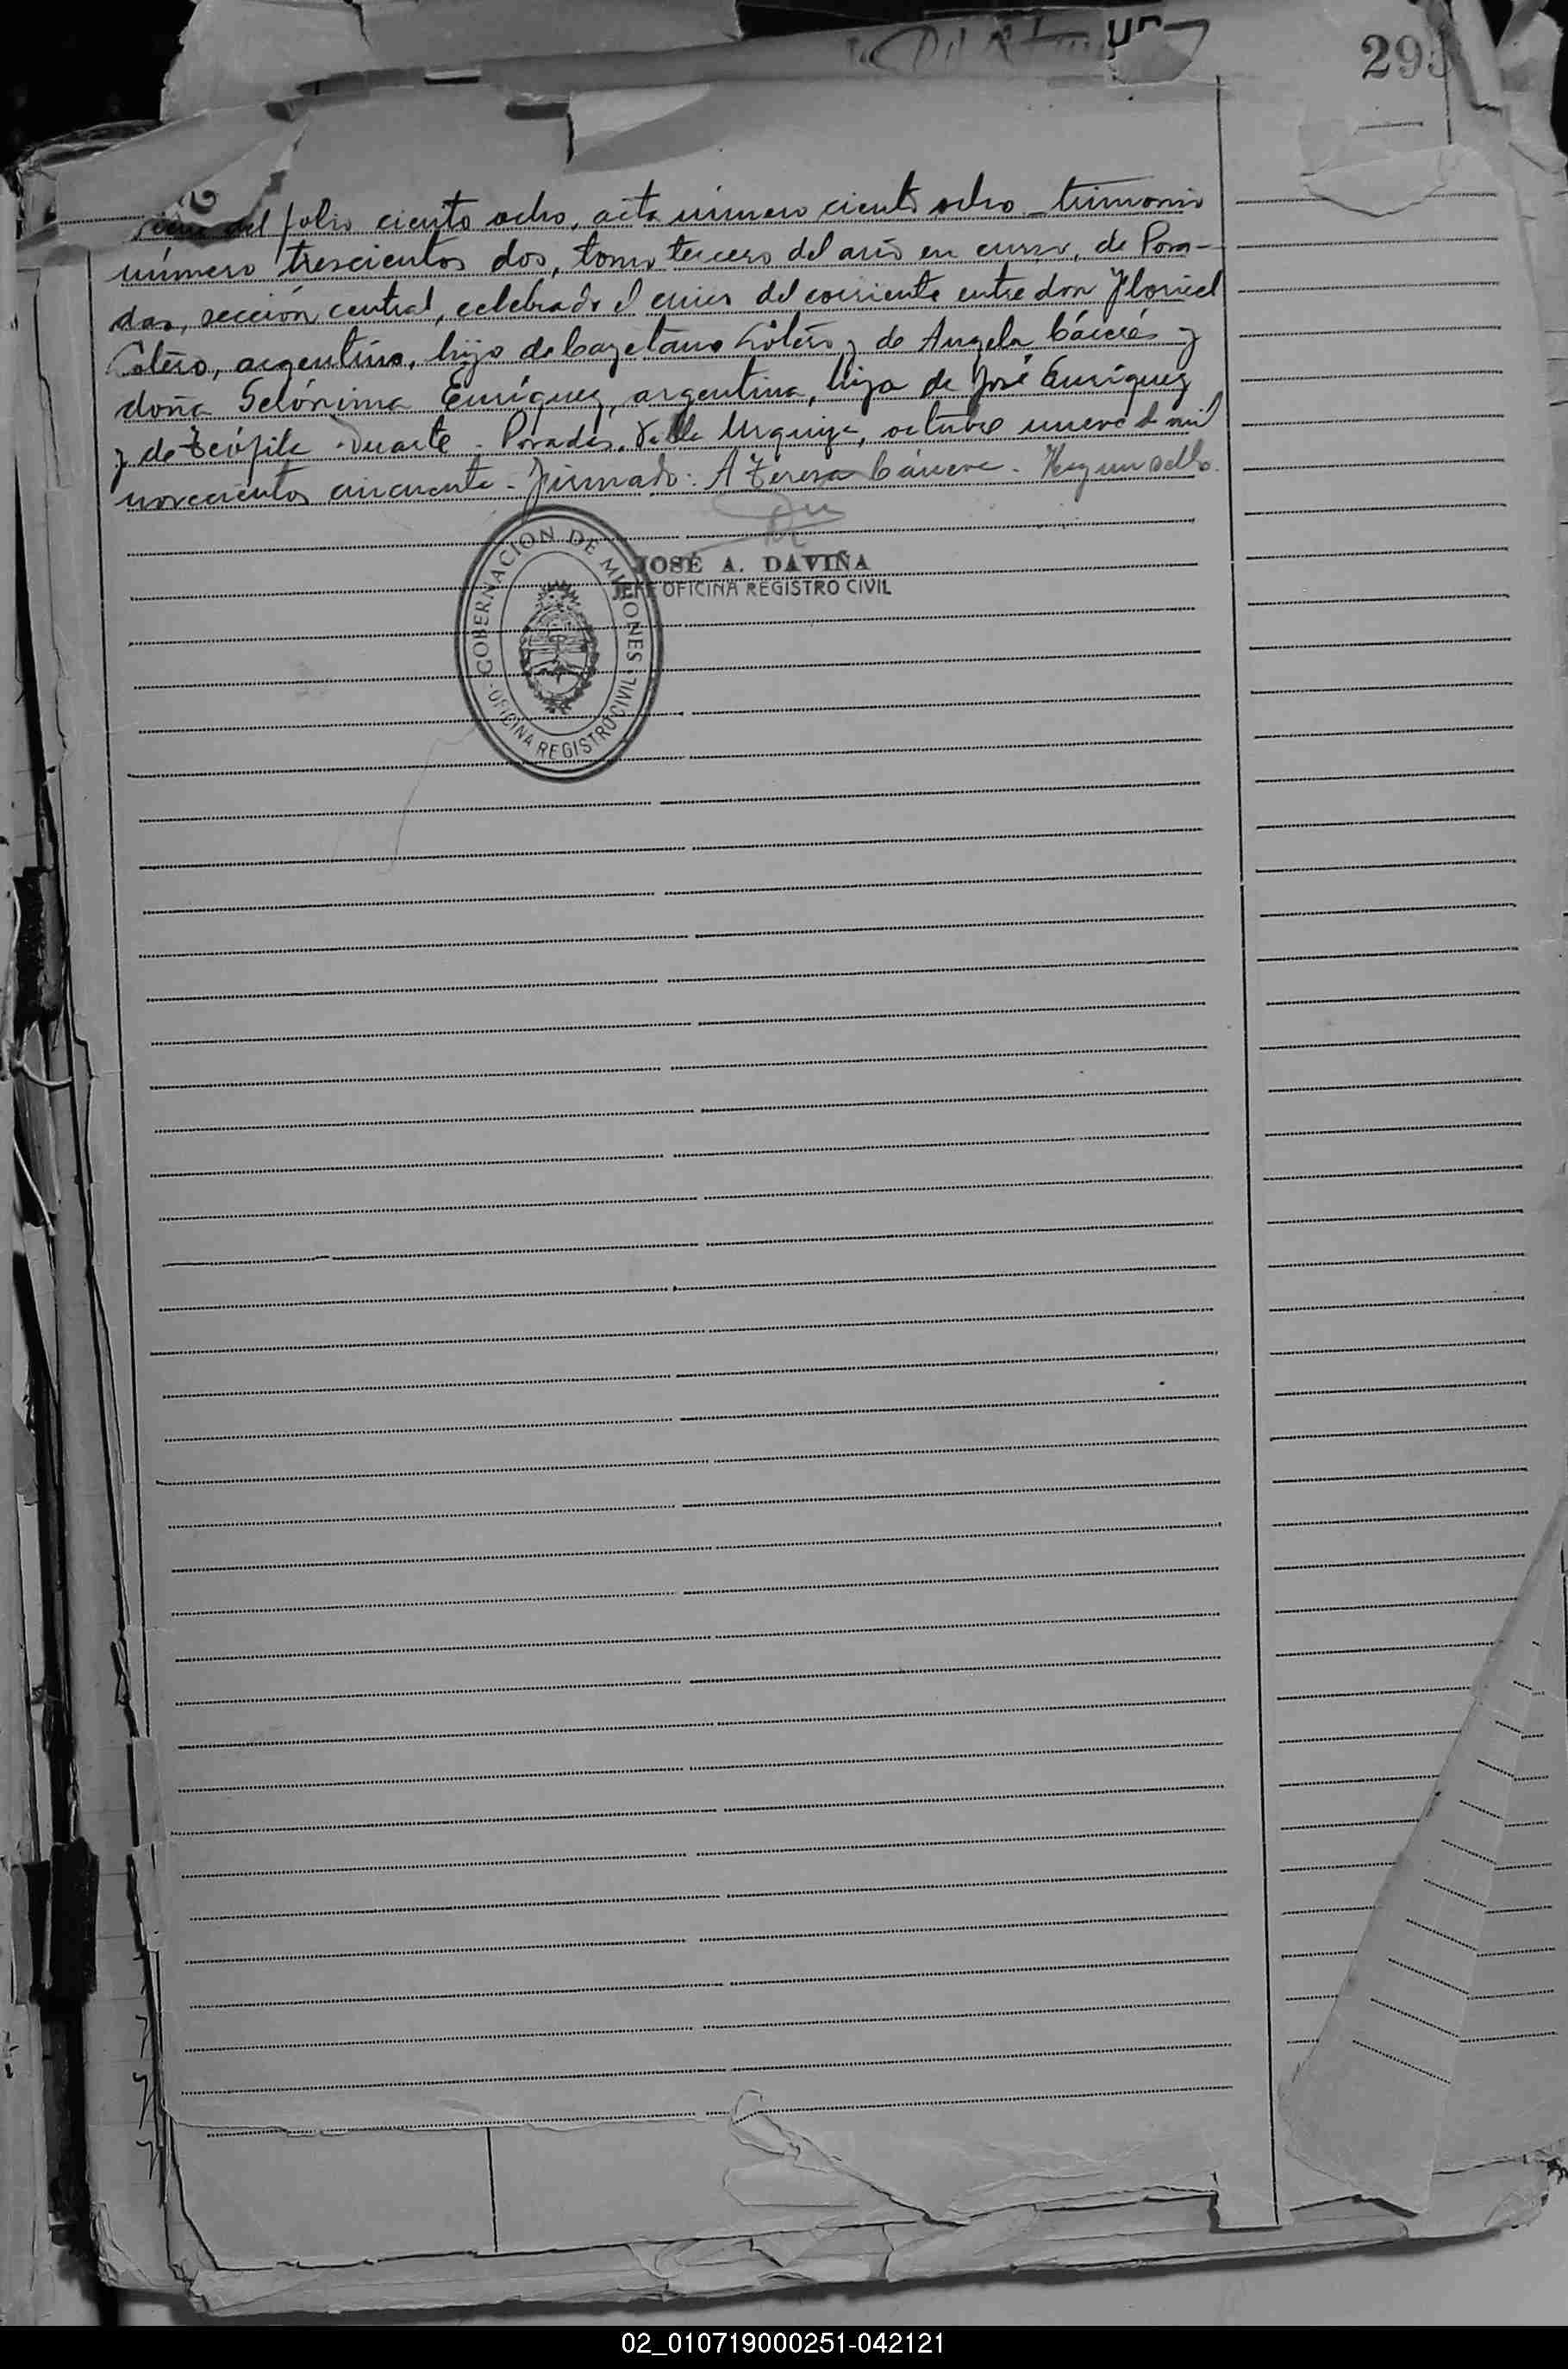 295
del folio ciento ocho, acta número ciento ocho - trimonio
número trescientos dos, tomo tercero del año en curso, de Posa-
das, sección central, celebrado el cinco del corriente entre don Floriel
Sotero, argentino, hijo de Cayetano Sotero y de Angela Cáceres y
doña Gerónima Enríquez, argentina, hija de José Enríquez
y de Teófila Duarte - Posadas, Villa Urquiza, octubre nueve de mil
novecientos cincuenta - Firmado: A Teresa - Hay un sello.
JOSÉ A. DAVIÑA
JEFE OFICINA REGISTRO CIVIL
GOBERNACION DE MISIONES
OFICINA REGISTRO CIVIL
02_010719000251-042121